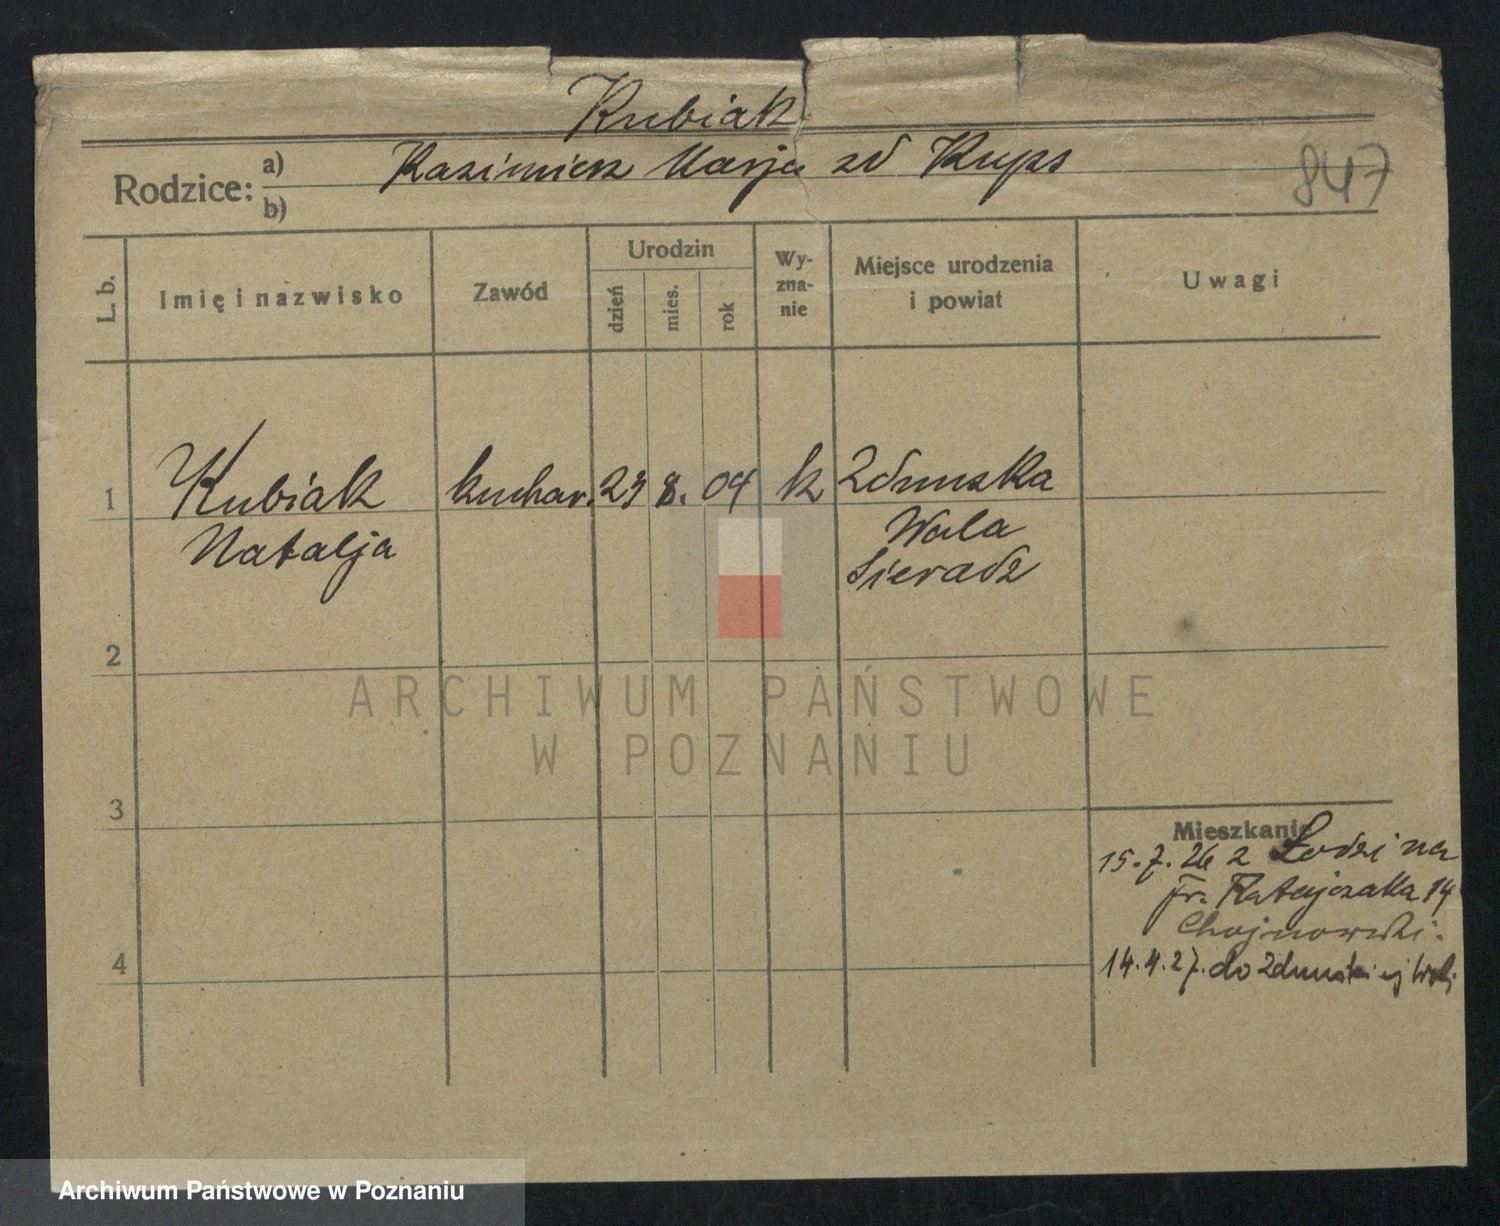 Kubiak
Rodzice: a) Kazimierz Marja zd Kups
b)
847
L. b.
Imię i nazwisko
Zawód
Urodzin
dzień
mies.
rok
Wy-
zna-
nie
Miejsce urodzenia
i powiat
Uwagi
1
Kubiak kuchar. 29 8. 04 k Zduńska
Natalja Wola
Sieradz
2
ARCHIWUM PAŃSTWOWE
W POZNANIU
3
Mieszkanie
15.7.26 z Łodzi na
Fr. Ratajczaka 14
Chojnowski.
4
14.4.27. do Zduńskiej Woli
Archiwum Państwowe w Poznaniu